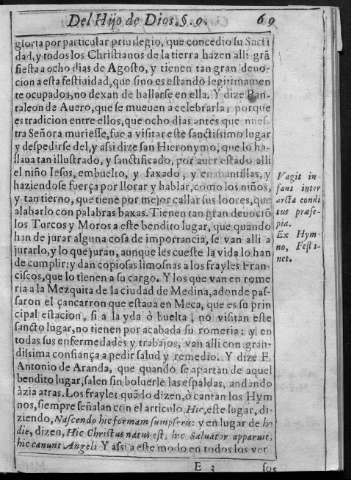 Del Hijo de Dios. §. 9. 69
gloria por particular priuilegio, que concedio su Sacti
dad, y todos los Christianos de la tierra hazen alli grã
fiesta a ocho dias de Agosto, y tienen tan gran deuo-
cion a esta festiuidad, que sino es estando legitimamen
te ocupados, no dexan de hallarse en ella. Y dize Pan-
taleon de Auero, que se mueuen a celebrarla; porque
es tradicion entre ellos, que ocho dias antes que nues-
tra Señora muriesse, fue a visitar este sanctissimo lugar
y despedirse del, y assi dize san Hieronymo, que lo ha-
llaua tan illustrado, y sanctificado, por auer estado alli
el niño Iesus, embuelto, y faxado, y en mantillas, y
haziendose fuerça por llorar y hablar, como los niños,
y tan tierno, que tiene por mejor callar sus loores, que
alabarlo con palabras baxas. Tienen tan gran deuociõ
los Turcos y Moros a este bendito lugar, que quando
han de jurar alguna cosa de importancia, se van alli a
jurarlo, y lo que juran, aunque les cueste la vida lo han
de cumplir: y dan copiosas limosnas a los frayles Fran-
ciscos, que lo tienen a su cargo. Y los que van en rome
ria a la Mezquita de la ciudad de Medina, adonde pas-
saron el çancarron que estaua en Meca, que es su prin
cipal estacion, si a la yda ò buelta, no visitan este
sancto lugar, no tienen por acabada su romeria: y en
todas sus enfermedades y trabajos, van alli con gran-
dissima confiança a pedir salud y remedio. Y dize F.
Antonio de Aranda, que quando se apartan de aquel
bendito lugar, salen sin boluerle las espaldas, andando
àzia atras. Los frayles quãdo dizen, ò cantan los Hym
nos, siempre señalan con el articulo. Hic, este lugar, di-
ziendo, Nascendo hic formam sumpseris: y en lugar de ho
die, dizen, Hic Christus natus est, hic Saluator apparuit,
hic canunt Angeli. Y assi a este modo en todos los ver-
E 3 sos
Vagit in-
fans inter
arcta condi
tus præse-
pia.
Ex Hym-
no, Festi-
net.